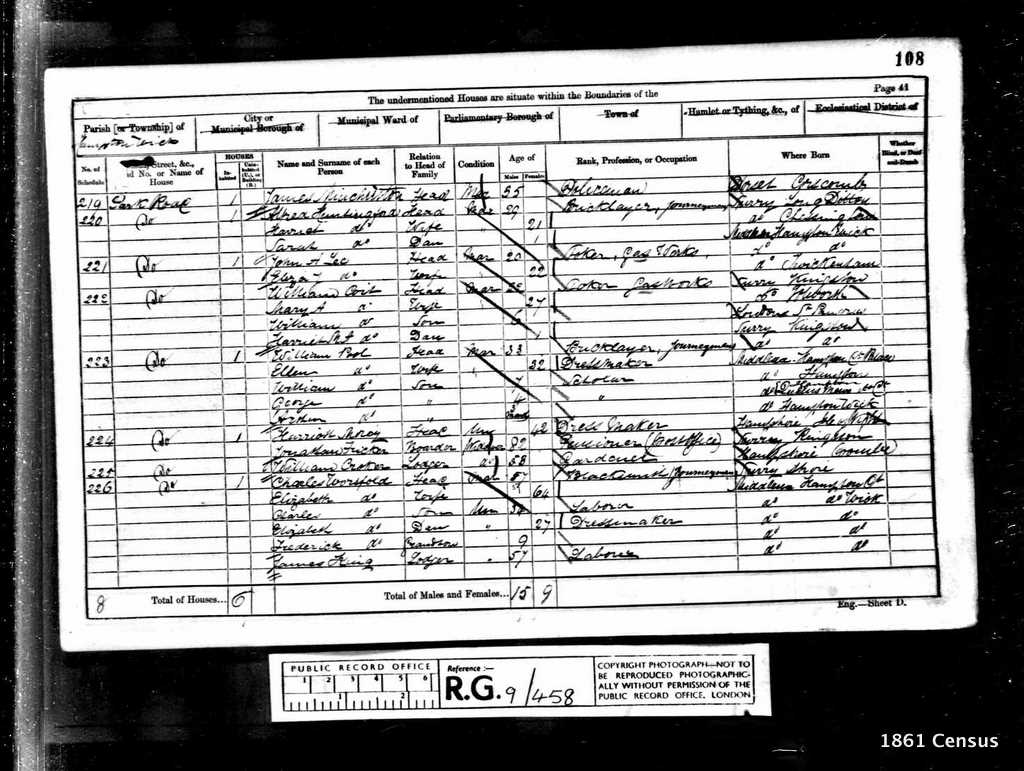 108
Page 41
The undermentioned Houses are situate within the Boundaries of the
Parish [or Township] of
City or Municipal Borough of
Municipal Ward of
Parliamentary Borough of
Town of
Hamlet or Tything, &c., of
Ecclesiastical District of
No. of Schedule
Street, &c., and No. or Name of House
HOUSES
Inhabited
Uninhabited (U.), or Building (B.)
Name and Surname of each Person
Relation to Head of Family
Condition
Age of
Males Females
Rank, Profession, or Occupation
Where Born
Whether Blind, or Deaf-and-Dumb
219 Park Road 1 James Head Mar 55 Policeman Dorset
220 Do 1 Alfred Huntingford Head Mar 29 Bricklayer, journeyman Surrey Long Ditton
Harriet do Wife " 21 do
Sarah do Dau 1 Hampton Wick
221 Do 1 John A Lee Head Mar 20 Stoker, Gas Works do do
Eliza do Wife 22 do Twickenham
222 Do William Head Mar Stoker Gas Works Surry Kingston
Mary A do Wife 27 do
William do Son London St Pancras
Harriet do Dau 1 Surry Kingston
223 Do 1 William Pool Head Mar 33 Bricklayer, journeyman do do
Ellen do Wife " 32 Dressmaker Middlesex Hampton
William do Son 7 Scholar do Hampton
George do " 4 "
Arthur do " do Hampton Wick
224 Do 1 Head Un 42 Dress Maker Hampshire Isle Wight
Jonathan Boarder 82 Pensioner (Post office) Surrey Kingston
225 Do William Croker Lodger do 58 Gardener Hampshire
226 Do 1 Charles Worsfold Head Mar Blacksmith (Journeyman) Surry
Elizabeth do Wife " 64 Middlesex Hampton
Charles do Son Un Labourer do do Wick
Elizabeth do Dau " 27 Dressmaker do do
Frederick do Grandson 9 do do
James King Lodger " 57 Labourer do do
8 Total of Houses... 6 Total of Males and Females... 15 9
Eng.—Sheet D.
PUBLIC RECORD OFFICE
1 2 3 4 5 6
1 2
Reference :—
R.G. 9/458
COPYRIGHT PHOTOGRAPH—NOT TO
BE REPRODUCED PHOTOGRAPHIC-
ALLY WITHOUT PERMISSION OF THE
PUBLIC RECORD OFFICE, LONDON
1861 Census